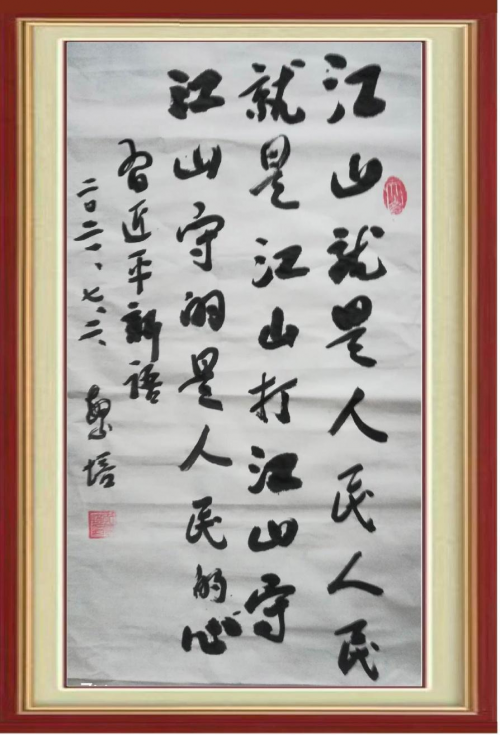 江山就是人民人民
就是江山打江山守
江山守的是人民的心
習近平新語
二〇二一、七、六、
培